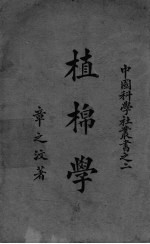 中國科學社叢書之二
植棉學
章之汶著